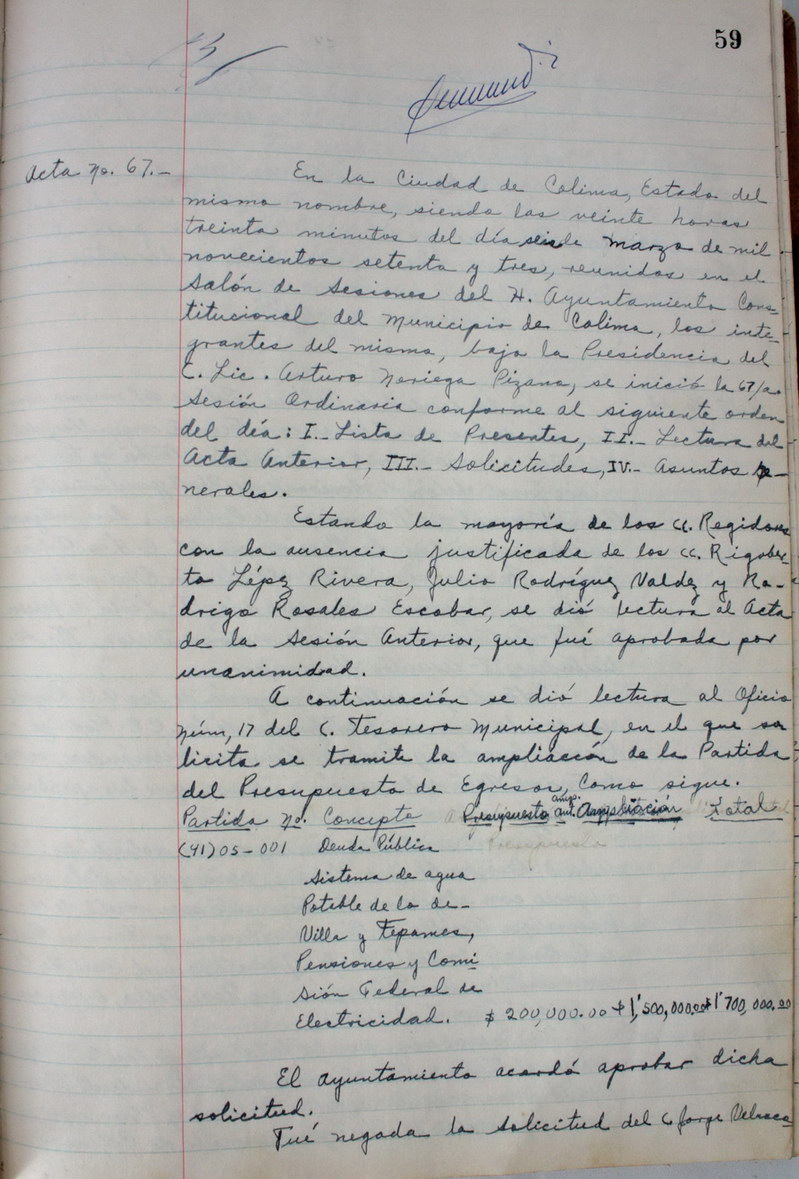 59
Acta No. 67.-
En la Ciudad de Colima, Estado del
mismo nombre, siendo las veinte horas
treinta minutos del día seis de marzo de mil
novecientos setenta y tres, reunidos en el
Salón de Sesiones del H. Ayuntamiento Cons-
titucional del Municipio de Colima, los inte-
grantes del mismo, bajo la Presidencia del
C. Lic. Arturo Noriega Pizano, se inició la 67/a.
Sesión Ordinaria conforme al siguiente orden
del día: I.- Lista de Presentes, II.- Lectura del
Acta Anterior, III.- Solicitudes, IV.- Asuntos Ge-
nerales.
Estando la mayoría de los CC. Regidores
con la ausencia justificada de los CC. Rigober-
to López Rivera, Julio Rodríguez Valdez y Ro-
drigo Rosales Escobar, se dió lectura al Acta
de la Sesión Anterior, que fué aprobada por
unanimidad.
A continuación se dió lectura al Oficio
Núm, 17 del C. Tesorero Municipal, en el que so
licita se tramite la ampliación de la Partida
del Presupuesto de Egresos, Como sigue.
Partida No. Concepto Presupuesto ant. Amp. Ampliación Total
(41) 05-001 Deuda Pública Presupuesto
Sistema de agua
Potable de lo de-
Villa y Tepames,
Pensiones y Comi
sión Federal de
Electricidad. $ 200,000.00 $ 1'500,000.00 $ 1'700,000.00
El Ayuntamiento acordó aprobar dicha
solicitud.
Fué negada la solicitud del C. Jorge Velasco